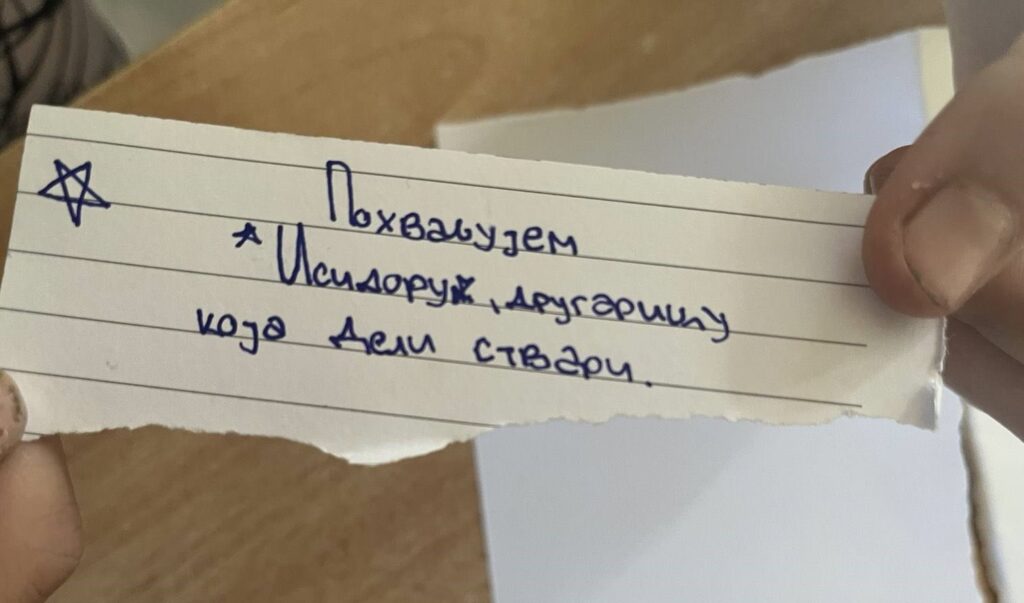 Похваљујем
Исидору, другарицу
која дели ствари.